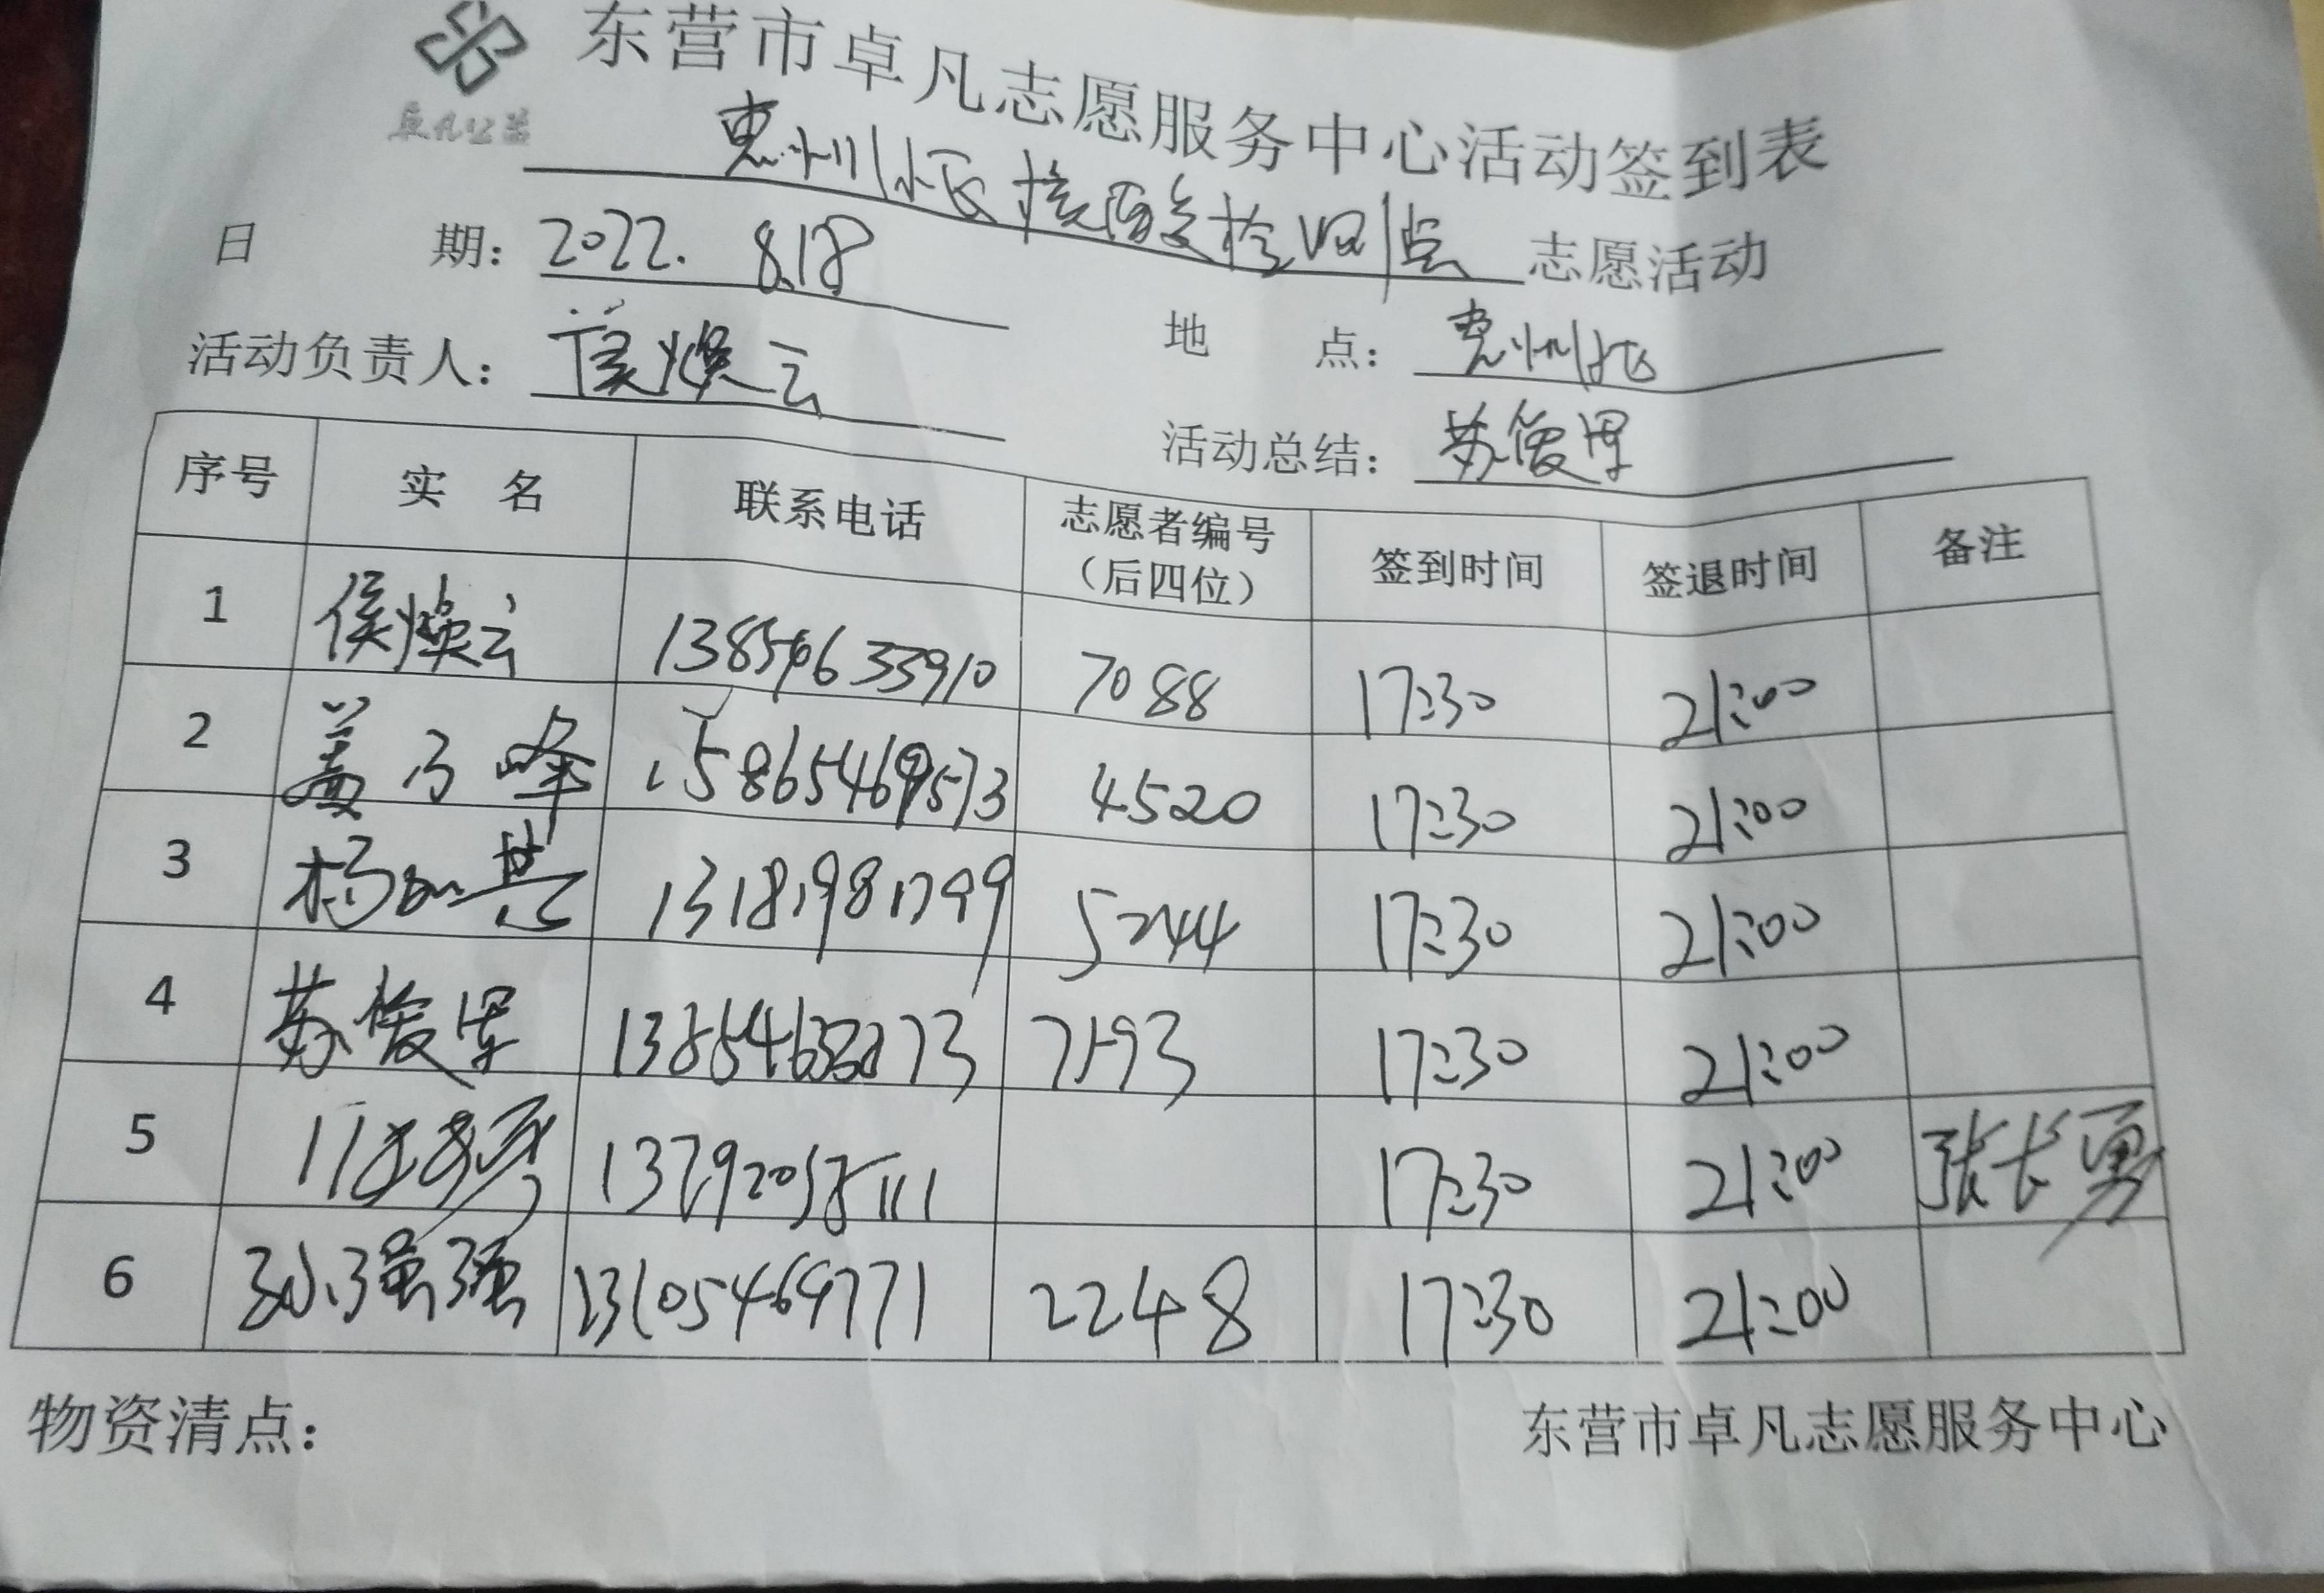 卓凡公益
东营市卓凡志愿服务中心活动签到表
惠州 核酸检测点 志愿活动
日 期： 2022. 8.18
地 点： 惠州
活动负责人： 侯焕云
活动总结： 苏俊军
序号 实 名 联系电话 志愿者编号（后四位） 签到时间 签退时间 备注
1 侯焕云 13854633910 7088 17:30 21:00
2 盖 峰 15865469573 4520 17:30 21:00
3 杨 其 13181981799 5244 17:30 21:00
4 苏俊军 7193 17:30 21:00
5 13792058111 17:30 21:00 张长勇
6 孙强强 13105469771 2248 17:30 21:00
物资清点：
东营市卓凡志愿服务中心